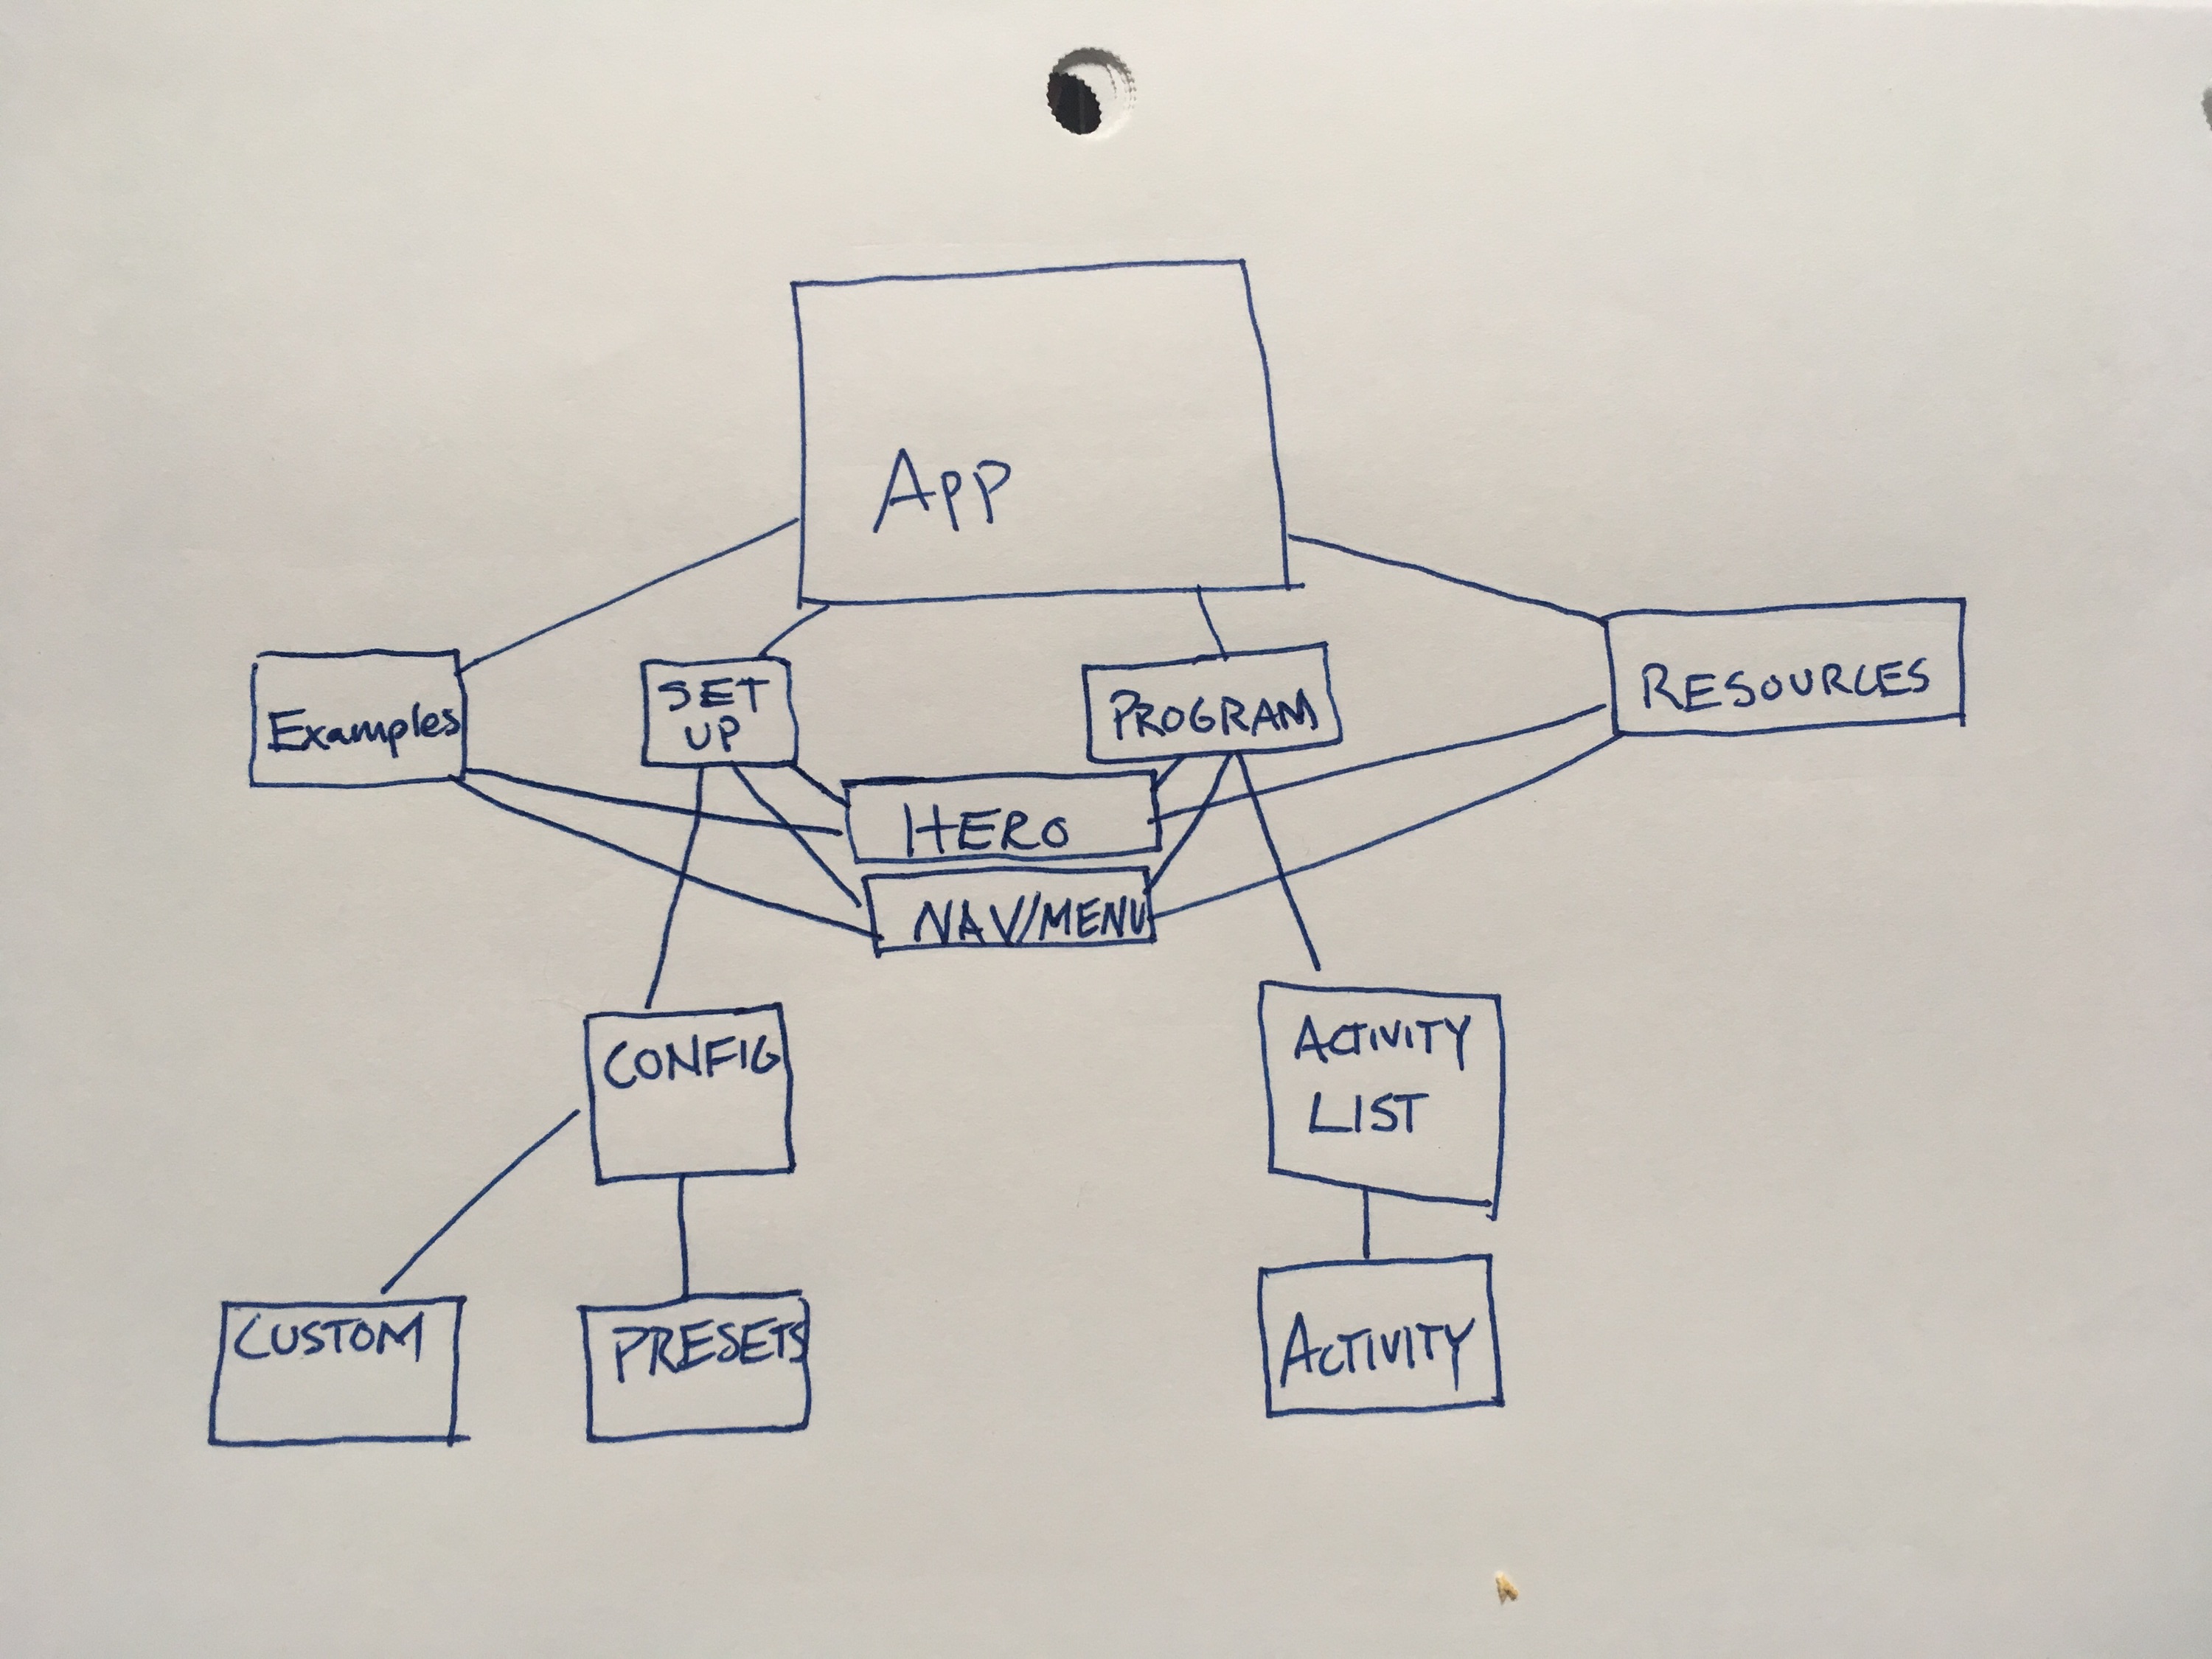 App
Examples
SET
UP
PROGRAM
RESOURCES
HERO
NAV/MENU
CONFIG
ACTIVITY
LIST
CUSTOM
PRESETS
ACTIVITY